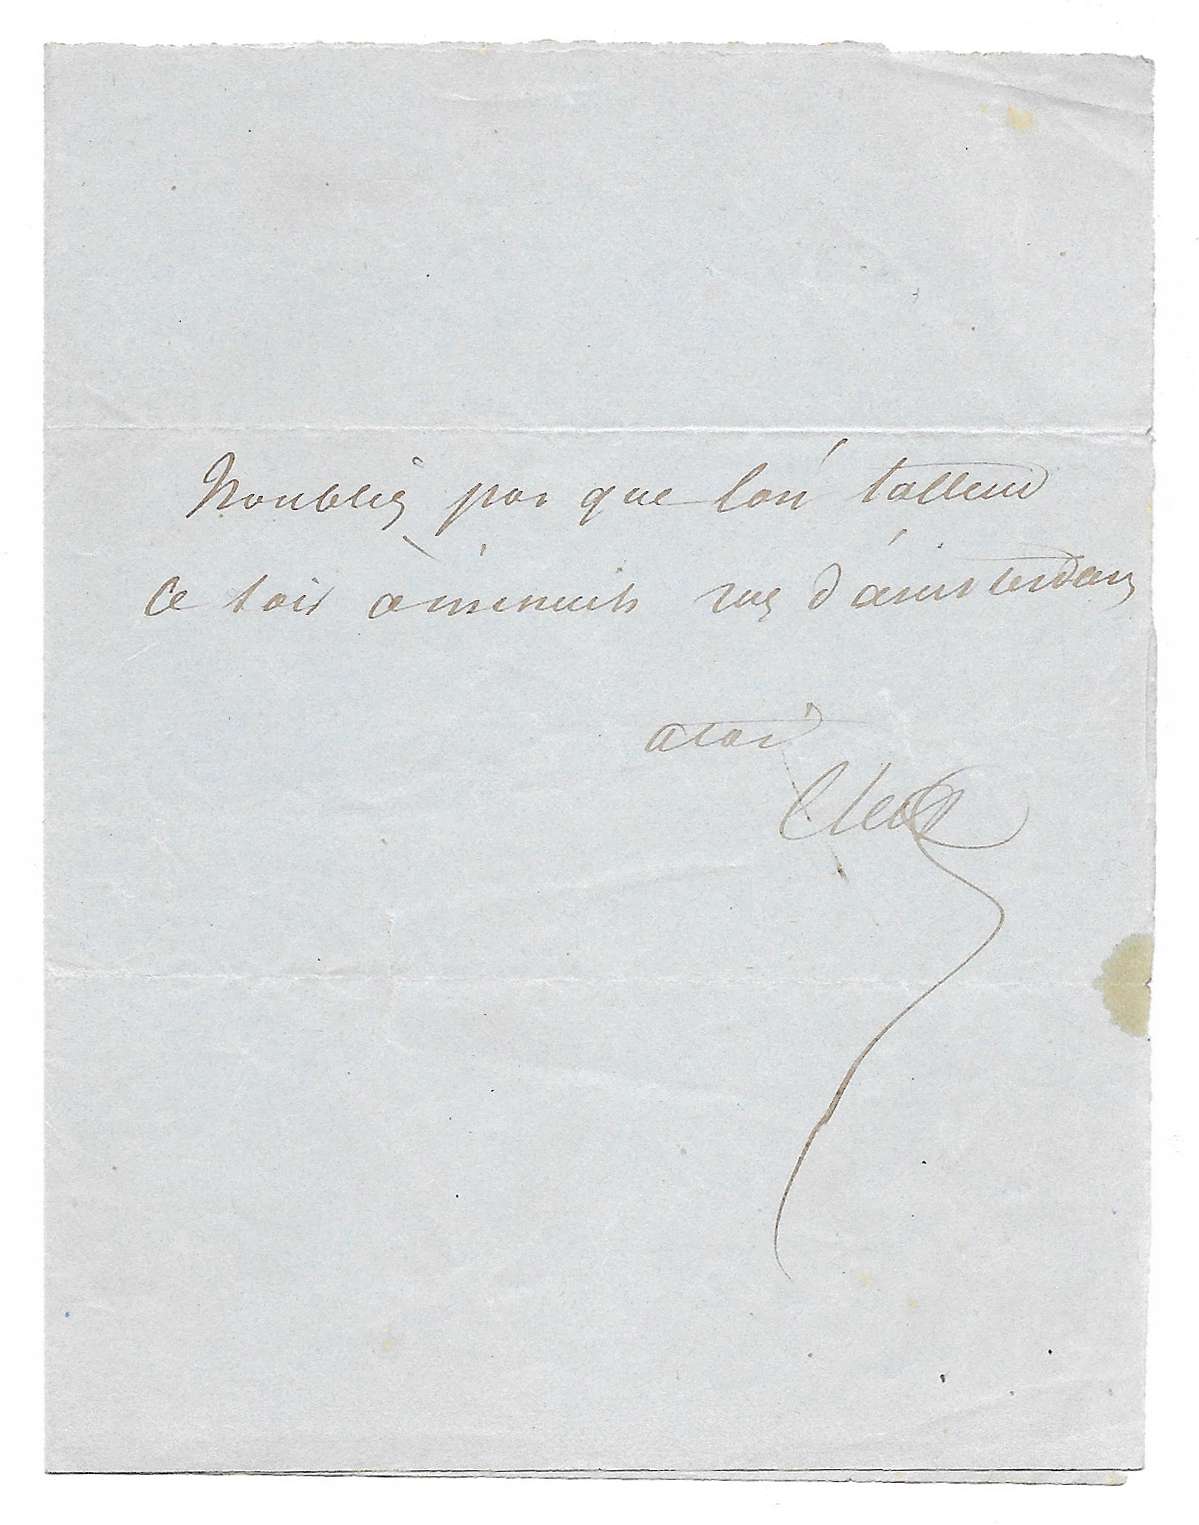 Noubliez pas que lon tattend
Ce soir à minuit rue d'amsterdam
a toi